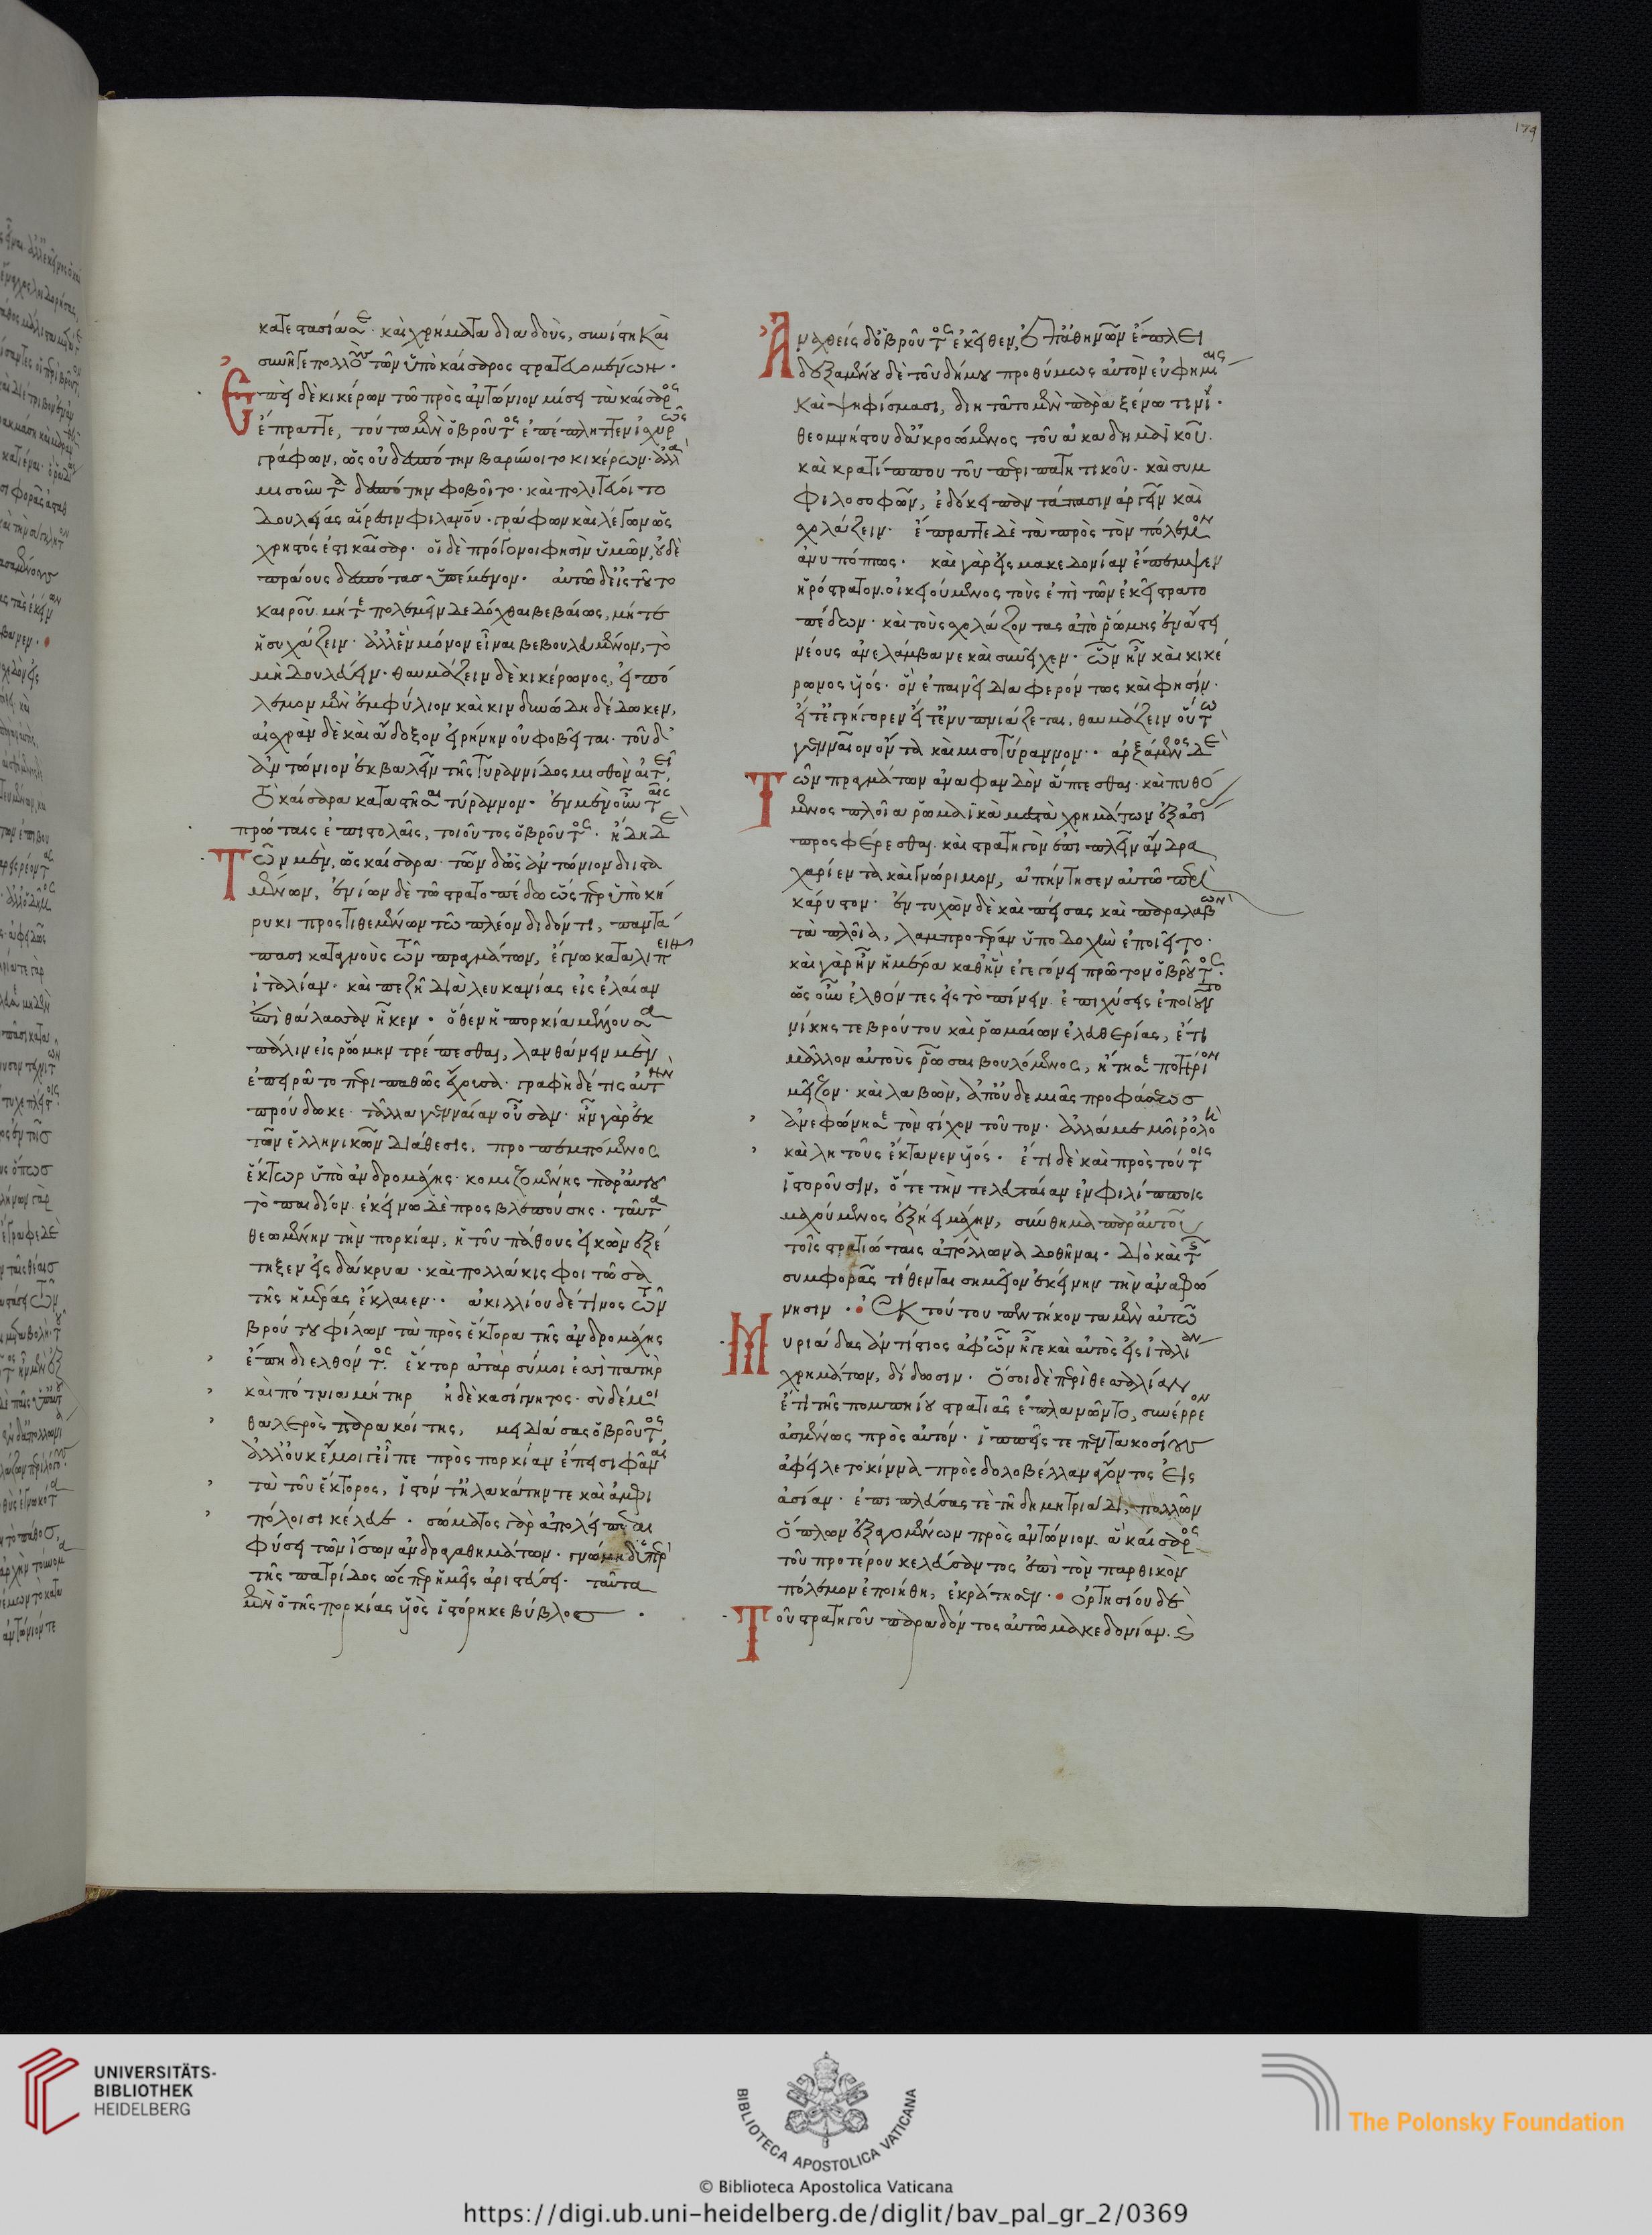 179
κατεστασίασε· καὶ χρήματα διαδοὺς, συνίστη καὶ
συνῆγε πολλοὺς τῶν ὑπὸ καίσαρος στρατευομένων·
Ἐπεὶ δὲ κικέρων τῶ πρὸς ἀντώνιον μίσει τὰ καίσαρος
ἔπραττε, τούτω μὲν ὁ βροῦτος ἐπέπληττεν ἰσχυρῶς
γράφων, ὡς οὐ δεσπότην βαρύνοιτο κικέρων· ἀλλὰ
μισοῦντα δεσπότην φοβοῖτο· καὶ πολιτεύοιτο
δουλείας αἵρεσιν φιλανου· γράφων καὶ λέγων ὡς
χρηστός ἐστι καῖσαρ· οἱ δὲ πρόγονοι φησὶν ὑμῶν, οὐδὲ
πράους δεσπότας ὑπέμενον· αὐτῶ δ' εἰς τοῦτο
καιροῦ μήτε πολεμεῖν δεδόχθαι βεβαίως, μήτε
ἡσυχάζειν· ἀλλ' ἓν μόνον εἶναι βεβουλευμένον, τὸ
μὴ δουλεύειν· θαυμάζειν δὲ κικέρωνος, εἰ πό
λεμον μὲν ἐμφύλιον καὶ κινδυνώδη δέδοικεν,
αἰσχρὰν δὲ καὶ ἄδοξον εἰρήνην οὐ φοβεῖται· τοῦ δ'
ἀντώνιον ἐκβαλεῖν τῆς τυραννίδος μισθὸν αἰτεῖ,
τὸ καίσαρα καταστῆσαι τύραννον· ἐν μὲν οὖν ταῖς
πρώταις ἐπιστολαῖς, τοιοῦτος ὁ βροῦτος· ἤδη δὲ
Τῶν μὲν, ὡς καίσαρα· τῶν δ' ὡς ἀντώνιον διιστα
μένων, ὠνίων δὲ τῶν στρατοπέδων ὥσπερ ὑπὸ κή
ρυκι προστιθεμένων τῶ πλέον διδόντι, παντά
πασι καταγνοὺς τῶν πραγμάτων, ἔγνω καταλιπεῖν
ἰταλίαν· καὶ πεζῆ διὰ λευκανίας εἰς ἐλαίαν
ἐπὶ θάλασσαν ἧκεν· ὅθεν ἡ πορκία μέλλουσα
πάλιν εἰς ῥώμην τρέπεσθαι, λανθάνειν μὲν
ἐπειρᾶτο περιπαθῶς ἔχουσα· γραφὴ δέ τις αὐτὴν
προύδωκε· τἄλλα γενναίαν οὖσαν· ἦν γὰρ ἐκ
τῶν ἑλληνικῶν διάθεσις, προπεμπόμενος
ἕκτωρ ὑπὸ ἀνδρομάχης κομιζομένης παρ' αὐτοῦ
τὸ παιδίον· ἐκείνω δὲ προσβλεπούσης· ταῦτα
θεωμένην τὴν πορκίαν, ἡ τοῦ πάθους εἰκὼν ἐξέ
τηξεν εἰς δάκρυα· καὶ πολλάκις φοιτῶσα
τῆς ἡμέρας ἔκλαιεν· ἀκιλλίου δέ τινος τῶν
βρούτου φίλων τὰ πρὸς ἕκτορα τῆς ἀνδρομάχης
ἔπη διελθόντος· ἕκτορ ἀτὰρ σύ μοι ἐσσὶ πατὴρ
καὶ πότνια μήτηρ ἠδὲ κασίγνητος· σὺ δέ μοι
θαλερὸς παρακοίτης, μειδιάσας ὁ βροῦτος
ἀλλ' οὐκ ἐμοί γ' εἶπε πρὸς πορκίαν ἔπεισι φάναι
τὰ τοῦ ἕκτορος, ἱστόν τ' ἠλακάτην τε καὶ ἀμφι
πόλοισι κέλευε· σώματος γὰρ ἀπολείπεται
φύσει τῶν ἴσων ἀνδραγαθημάτων· γνώμη δ' ὑπὲρ
τῆς πατρίδος ὥσπερ ἡμεῖς ἀριστεύσει· ταῦτα
μὲν ὁ τῆς πορκίας υἱὸς ἱστόρηκε βύβλος·
Ἀναχθεὶς δ' ὁ βροῦτος ἐκεῖθεν, ἐπ' ἀθηνῶν ἔπλει
δεξαμένου δὲ τοῦ δήμου προθύμως αὐτὸν εὐφημίαις
καὶ ψηφίσμασι, διητᾶτο μὲν παρὰ ξένω τινί·
θεομνήτου δ' ἀκροώμενος τοῦ ἀκαδημαϊκοῦ·
καὶ κρατίππου τοῦ περιπατητικοῦ· καὶ συμ
φιλοσοφῶν, ἐδόκει παντάπασιν ἀργεῖν καὶ
σχολάζειν· ἔπραττε δὲ τὰ πρὸς τὸν πόλεμον
ἀνυπόπτως· καὶ γὰρ εἰς μακεδονίαν ἔπεμψεν
ἡρόστρατον οἰκειούμενος τοὺς ἐπὶ τῶν ἐκεῖ στρατο
πέδων· καὶ τοὺς σχολάζοντας ἀπὸ ῥώμης ἐν ἄστει
νέους ἀνελάμβανε καὶ συνεῖχεν· ὧν ἦν καὶ κικέ
ρωνος υἱός· ὃν ἐπαινεῖ διαφερόντως καὶ φησίν·
εἴτ' ἐγρήγορεν εἴτ' ἐνυπνιάζεται, θαυμάζειν οὕτω
γενναῖον ὄντα καὶ μισοτύραννον· ἀρξάμενος δὲ
Τῶν πραγμάτων ἀναφανδὸν ἅπτεσθαι· καὶ πυθό
μενος πλοῖα ῥωμαϊκὰ μεστὰ χρημάτων ἐξ ἀσί
προσφέρεσθαι· καὶ στρατηγὸν ἐπιπλεῖν ἄνδρα
χαρίεντα καὶ γνώριμον, ἀπήντησεν αὐτῶ περὶ
κάρυστον· ἐντυχὼν δὲ καὶ πείσας καὶ παραλαβὼν
τὰ πλοῖα, λαμπροτέραν ὑποδοχὴν ἐποιεῖτο·
καὶ γὰρ ἦν ἡμέρα καθ' ἣν ἐγεγόνει πρῶτον ὁ βροῦτος·
ὡς οὖν ἐλθόντες εἰς τὸ πίνειν ἐπιχύσεις ἐποιοῦντο
νίκης τε βρούτου καὶ ῥωμαίων ἐλευθερίας, ἔτι
μᾶλλον αὐτοὺς ῥῶσαι βουλόμενος, ᾔτησε ποτήριον
μεῖζον· καὶ λαβὼν, ἀπ' οὐδεμιᾶς προφάσεως
ἀνεφώνησε τὸν στίχον τοῦτον· ἀλλά με μοῖρ' ὀλοὴ
καὶ λητοῦς ἔκτανεν υἱός· ἔτι δὲ καὶ πρὸς τούτοις
ἱστοροῦσιν, ὅτε τὴν τελευταίαν ἐν φιλίπποις
μαχούμενος ἐξήει μάχην, σύνθημα παρ' αὐτοῦ
τοῖς στρατιώταις ἀπόλλωνα δοθῆναι· διὸ καὶ τῆς
συμφορᾶς τίθενται σημεῖον ἐκείνην τὴν ἀναφώ
νησιν· Ἐκ τούτου πεντήκοντα μὲν αὐτῶ
Μυριάδας ἀντίστιος ἀφ' ὧν ἦγε καὶ αὐτὸς εἰς ἰταλίαν
χρημάτων, δίδωσιν· ὅσοι δὲ περὶ θεσσαλίαν
ἔτι τῆς πομπηίου στρατιᾶς ἐπλανῶντο, συνέρρεον
ἀσμένως πρὸς αὐτόν· ἱππεῖς τε πεντακοσίους
ἀφείλετο κίννα πρὸς δολοβέλλαν ἄγοντος εἰς
ἀσίαν· ἐπιπλεύσας τε τῆ δημητριάδι, πολλῶν
ὅπλων ἐξαγομένων πρὸς ἀντώνιον· ἃ καίσαρος
τοῦ προτέρου κελεύσαντος ἐπὶ τὸν παρθικὸν
πόλεμον ἐποιήθη, ἐκράτησεν· ὁρτησίου δὲ
Τοῦ στρατηγοῦ παραδόντος αὐτῶ μακεδονίαν. ς
UNIVERSITÄTS-
BIBLIOTHEK
HEIDELBERG
BIBLIOTECA APOSTOLICA VATICANA
The Polonsky Foundation
© Biblioteca Apostolica Vaticana
https://digi.ub.uni-heidelberg.de/diglit/bav_pal_gr_2/0369